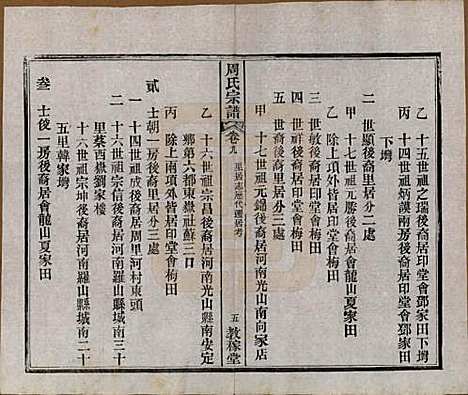 乙 十五世祖之瑞後裔居印堂會鄧家田下塆
丙 十四世祖炳謨兩房後裔居印堂會鄧家田
下塆
二 世顯後裔里居分二處
甲 十七世祖元勝後裔居會龍山夏家田
乙 除上項外皆居印堂會梅田
三 世敏後裔居印堂會梅田
四 世祥後裔居印堂會梅田
五 世裔後裔里居分三處
甲 十七世祖元錦後裔居河南光山南向家店
周氏宗譜
卷九
里居志歷代遷居考
五
教稼堂
乙 十六世祖宗昌後裔居河南光山縣南安定
鄉第六都東嶽社蘇三口
丙 除上兩項外皆居印堂會梅田
貳 士朝一房後裔里居三處
一 十四世祖成後裔居周里河村東頭
二 十六世祖宗信後裔居河南羅山縣城南三十
里蔡西嶽劉家樓
三 十六世祖宗坤後裔居河南羅山縣城南二十
五里韓家塆
叁 士俊一房後裔居會龍山夏家田